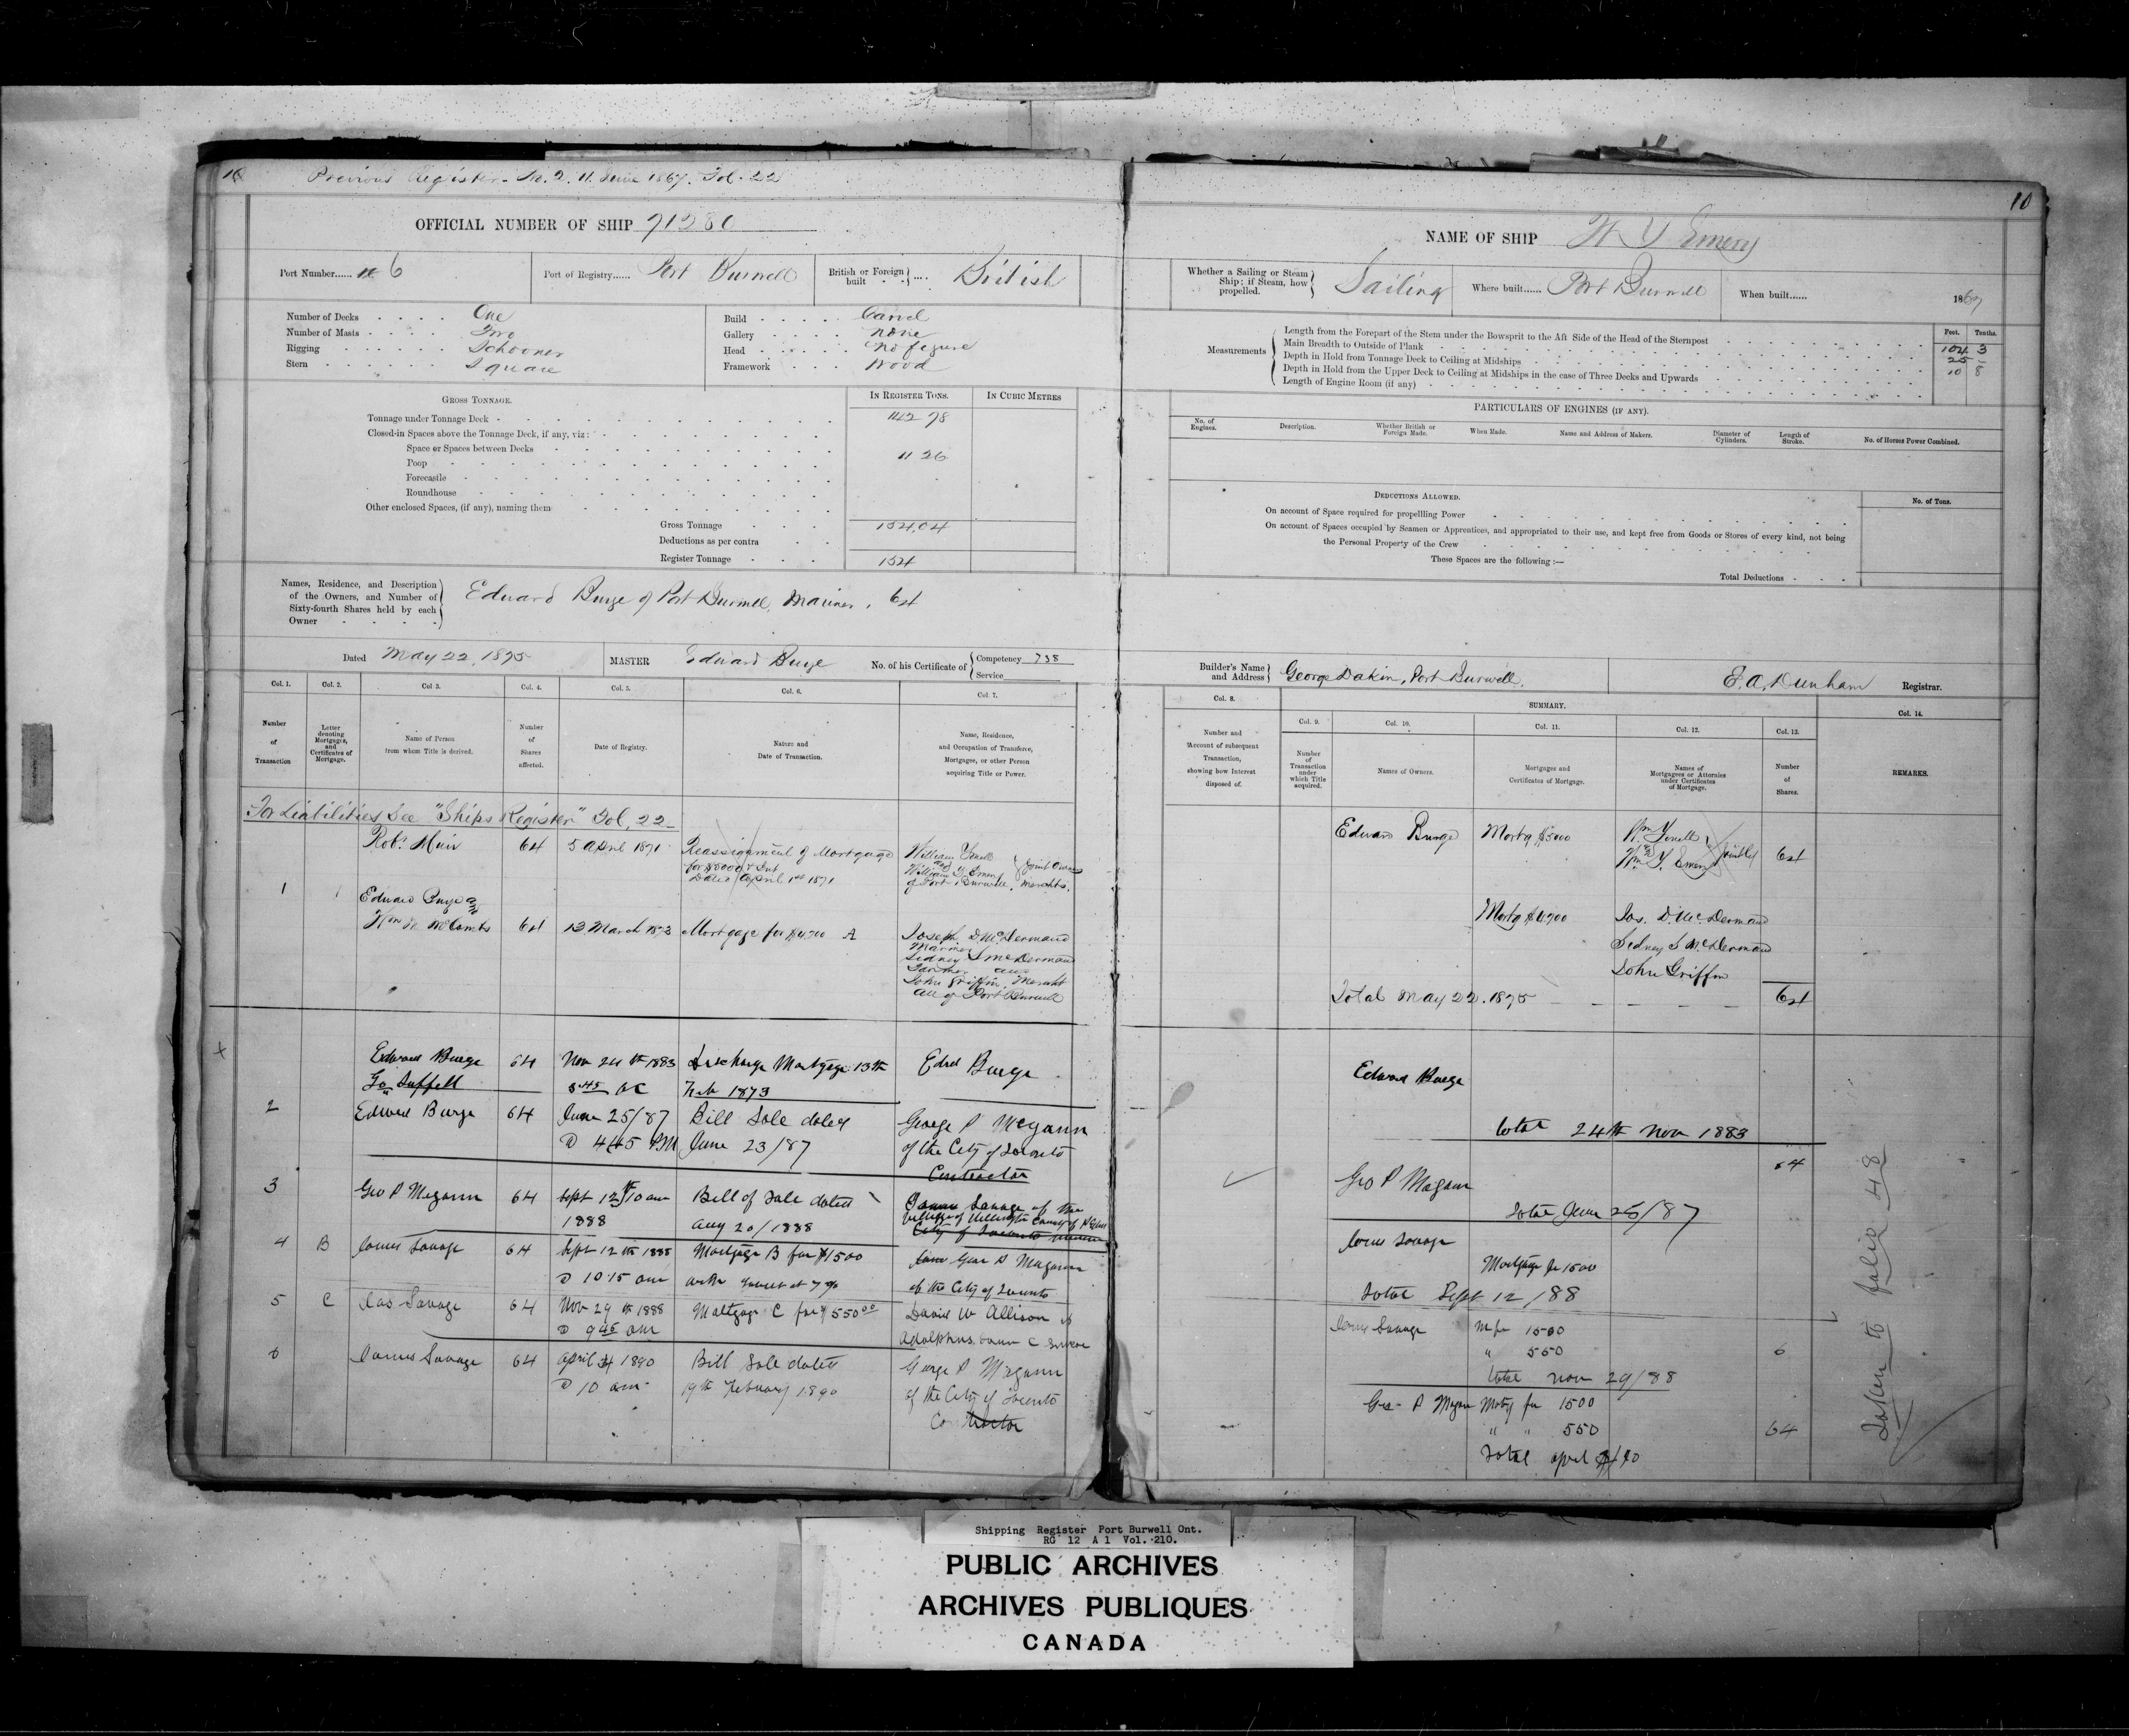 10
Previous Register - No. 2. 11. June 1867. Fol. 22
OFFICIAL NUMBER OF SHIP 71280
Port Number...... 6
Port of Registry...... Port Burwell
British or Foreign built British
Number of Decks One
Number of Masts Two
Rigging Schooner
Stern Square
Build Carvel
Gallery none
Head no figure
Framework Wood
GROSS TONNAGE.
IN REGISTER TONS.
IN CUBIC METRES
Tonnage under Tonnage Deck 142 78
Closed-in Spaces above the Tonnage Deck, if any, viz:
Space or Spaces between Decks
Poop 11 26
Forecastle
Roundhouse
Other enclosed Spaces, (if any), naming them
Gross Tonnage 154.04
Deductions as per contra
Register Tonnage 154
Names, Residence, and Description of the Owners, and Number of Sixty-fourth Shares held by each Owner
Edward Burge of Port Burwell, Mariner, 64
Dated May 22, 1875
MASTER Edward Burge
No. of his Certificate of Competency 738
Service
Col. 1.
Col. 2.
Col 3.
Col. 4.
Col. 5.
Col. 6.
Col. 7.
Number of Transaction
Letter denoting Mortgages, and Certificates of Mortgage.
Name of Person from whom Title is derived.
Number of Shares affected.
Date of Registry.
Nature and Date of Transaction.
Name, Residence, and Occupation of Transferee, Mortgagee, or other Person acquiring Title or Power.
For Liabilities See "Ships Register" Fol. 22
Robt. Muir 64 5 April 1871 Reassignment of Mortgage
for $3000 & Int
Dated April 1st 1871
William Y. Emery
of Port Burwell, Merchts.
Joint Owners
1
Edward Burge and
Wm McCombs 64 13 March 1873 Mortgage for $4700 A
Joseph D. McDermand
Mariner
Sidney S McDermand
Farmer and
John Griffin, Mercht
all of Port Burwell
Edward Burge 64 Nov 24th 1883 Discharge Mortgage 13th
Feb 1873
Edwd Burge
2 Edward Burge 64 June 25/87 Bill Sale dated
@ 4.45 PM June 23/87
George P Megann
of the City of Toronto
Contractor
3 Geo P Megann 64 Sept 12th 10 am
1888
Bill of Sale dated
Aug 20/1888
James Savage of the
Village of Wellington County of
City of Toronto
4 B James Savage 64 Sept 12th 1888
@ 10.15 am
Mortgage B for $1500
with Interest at 7%
Geo P Magann
of the City of Toronto
5 C Jas Savage 64 Nov 29th 1888
@ 9 45 am
Mortgage C for $550 00
David W Allison of
Adolphustown
6 James Savage 64 April 1890
@ 10 am
Bill Sale dated
19th February 1890
George P Magann
of the City of Toronto
Contractor
10
NAME OF SHIP W Y Emery
Whether a Sailing or Steam Ship; if Steam, how propelled. Sailing
Where built...... Port Burwell
When built...... 1867
Measurements
Feet. Tenths.
Length from the Forepart of the Stem under the Bowsprit to the Aft Side of the Head of the Sternpost 104 3
Main Breadth to Outside of Plank 25 -
Depth in Hold from Tonnage Deck to Ceiling at Midships 10 8
Depth in Hold from the Upper Deck to Ceiling at Midships in the case of Three Decks and Upwards
Length of Engine Room (if any)
PARTICULARS OF ENGINES (IF ANY).
No. of Engines.
Description.
Whether British or Foreign Made.
When Made.
Name and Address of Makers.
Diameter of Cylinders.
Length of Stroke.
No. of Horses Power Combined.
DEDUCTIONS ALLOWED.
No. of Tons.
On account of Space required for propellling Power
On account of Spaces occupied by Seamen or Apprentices, and appropriated to their use, and kept free from Goods or Stores of every kind, not being
the Personal Property of the Crew
These Spaces are the following :—
Total Deductions
Builder's Name and Address George Dakin, Port Burwell.
F. A. Dunham Registrar.
Col. 8.
SUMMARY.
Col. 14.
Col. 9.
Col. 10.
Col. 11.
Col. 12.
Col. 13.
Number and Account of subsequent Transaction, showing how Interest disposed of.
Number of Transaction under which Title acquired.
Names of Owners.
Mortgages and Certificates of Mortgage.
Names of Mortgagees or Attornies under Certificates of Mortgage.
Number of Shares.
REMARKS.
Edward Burge Mortg $3000
Wm Y. Emery jointly 64
Mortg $4700 Jos. D. McDermand
Sidney S McDermand
John Griffin
Total May 22. 1875 64
Edward Burge
total 24th Nov 1883
64
Geo P Magann
total June 25/87
James Savage
Mortgage for 1500
Total Sept 12/88
James Savage M for 1500
" 550
total Nov 29/88
Geo P Magann Motg for 1500
" " 550 64
Total April /90
Taken to folio 48
Shipping Register Port Burwell Ont.
RG 12 A 1 Vol. 210.
PUBLIC ARCHIVES
ARCHIVES PUBLIQUES
CANADA